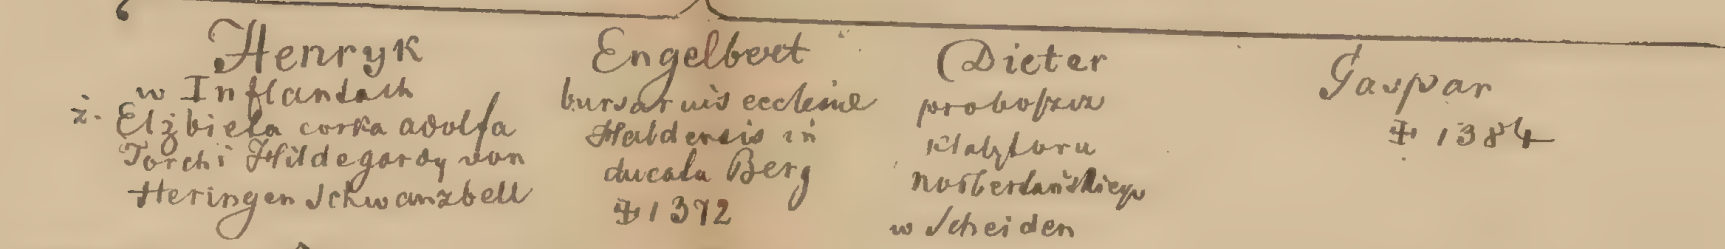 Henryk
w Inflantach
ż. Elżbieta corka adolfa
Torch i Hildegardy von
Heringen Schwanzbell
Engelbert
bursarius ecclesiae
Haldensis in
ducatu Berg
‡ 1372
Dieter
proboszcz
klasztoru
norbertańskiego
w Scheiden
Gaspar
‡ 1384